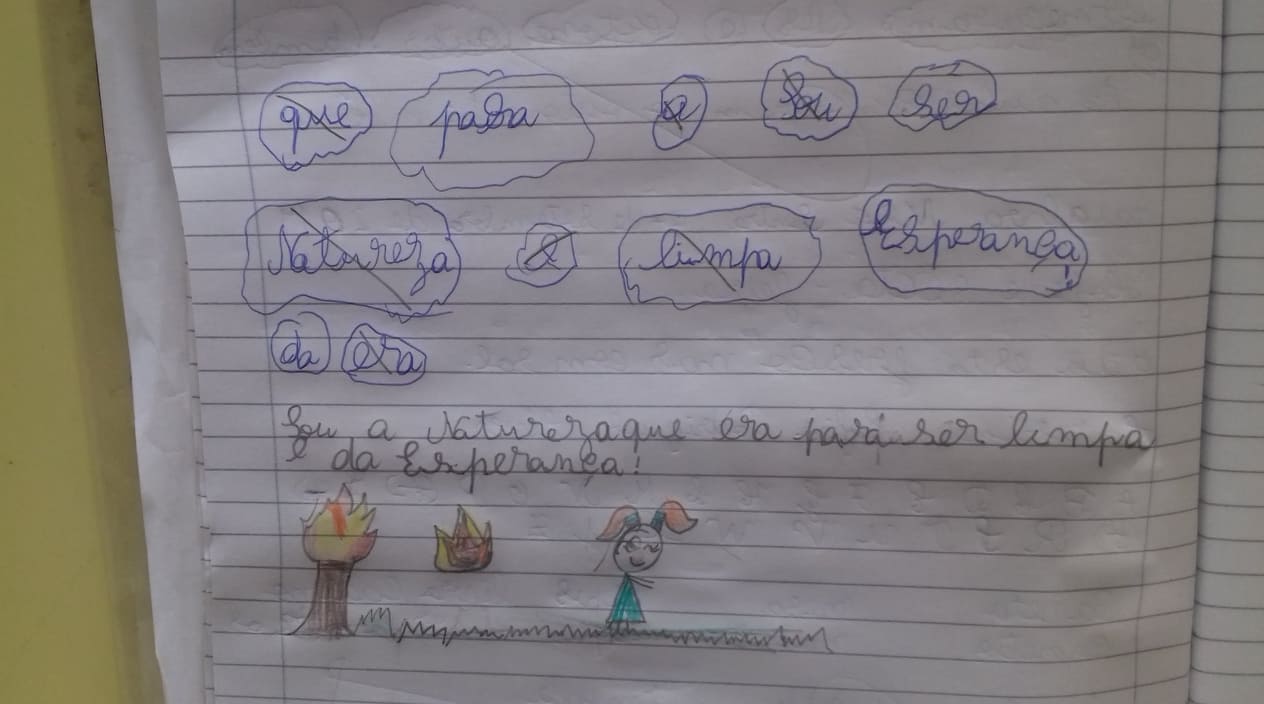 que para a Sou ser
Natureza e limpa Esperança!
da era
Sou a Natureza que era para ser limpa
e da Esperança!